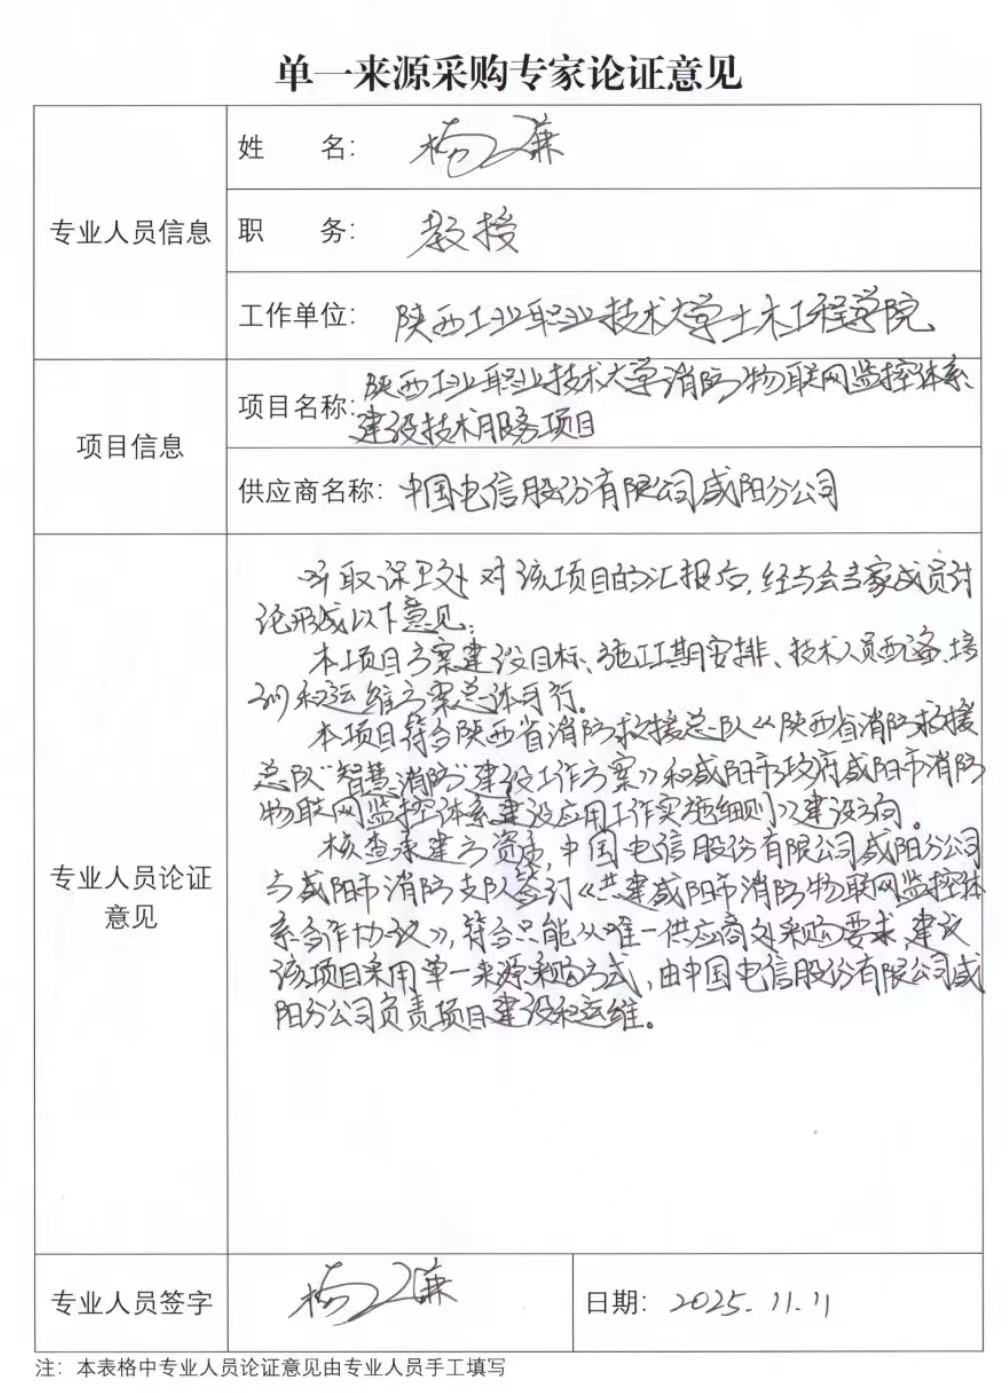 单一来源采购专家论证意见
专业人员信息
姓 名：杨谦
职 务：教授
工作单位：陕西工业职业技术大学土木工程学院
项目信息
项目名称：陕西工业职业技术大学消防物联网监控体系
建设技术服务项目
供应商名称：中国电信股份有限公司咸阳分公司
专业人员论证
意见
听取保卫处对该项目的汇报后，经与会专家成员讨
论形成以下意见：
本项目方案建设目标、施工工期安排、技术人员配备、培
训和运维方案总体可行。
本项目符合陕西省消防救援总队《陕西省消防救援
总队"智慧消防"建设工作方案》和咸阳市政府咸阳市消防
物联网监控体系建设应用工作实施细则》建设方向。
核查承建方资质，中国电信股份有限公司咸阳分公司
与咸阳市消防支队签订《共建咸阳市消防物联网监控体
系合作协议》，符合只能从唯一供应商处采购要求，建议
该项目采用单一来源采购方式，由中国电信股份有限公司咸
阳分公司负责项目建设和运维。
专业人员签字
日期：2025.11.11
注：本表格中专业人员论证意见由专业人员手工填写